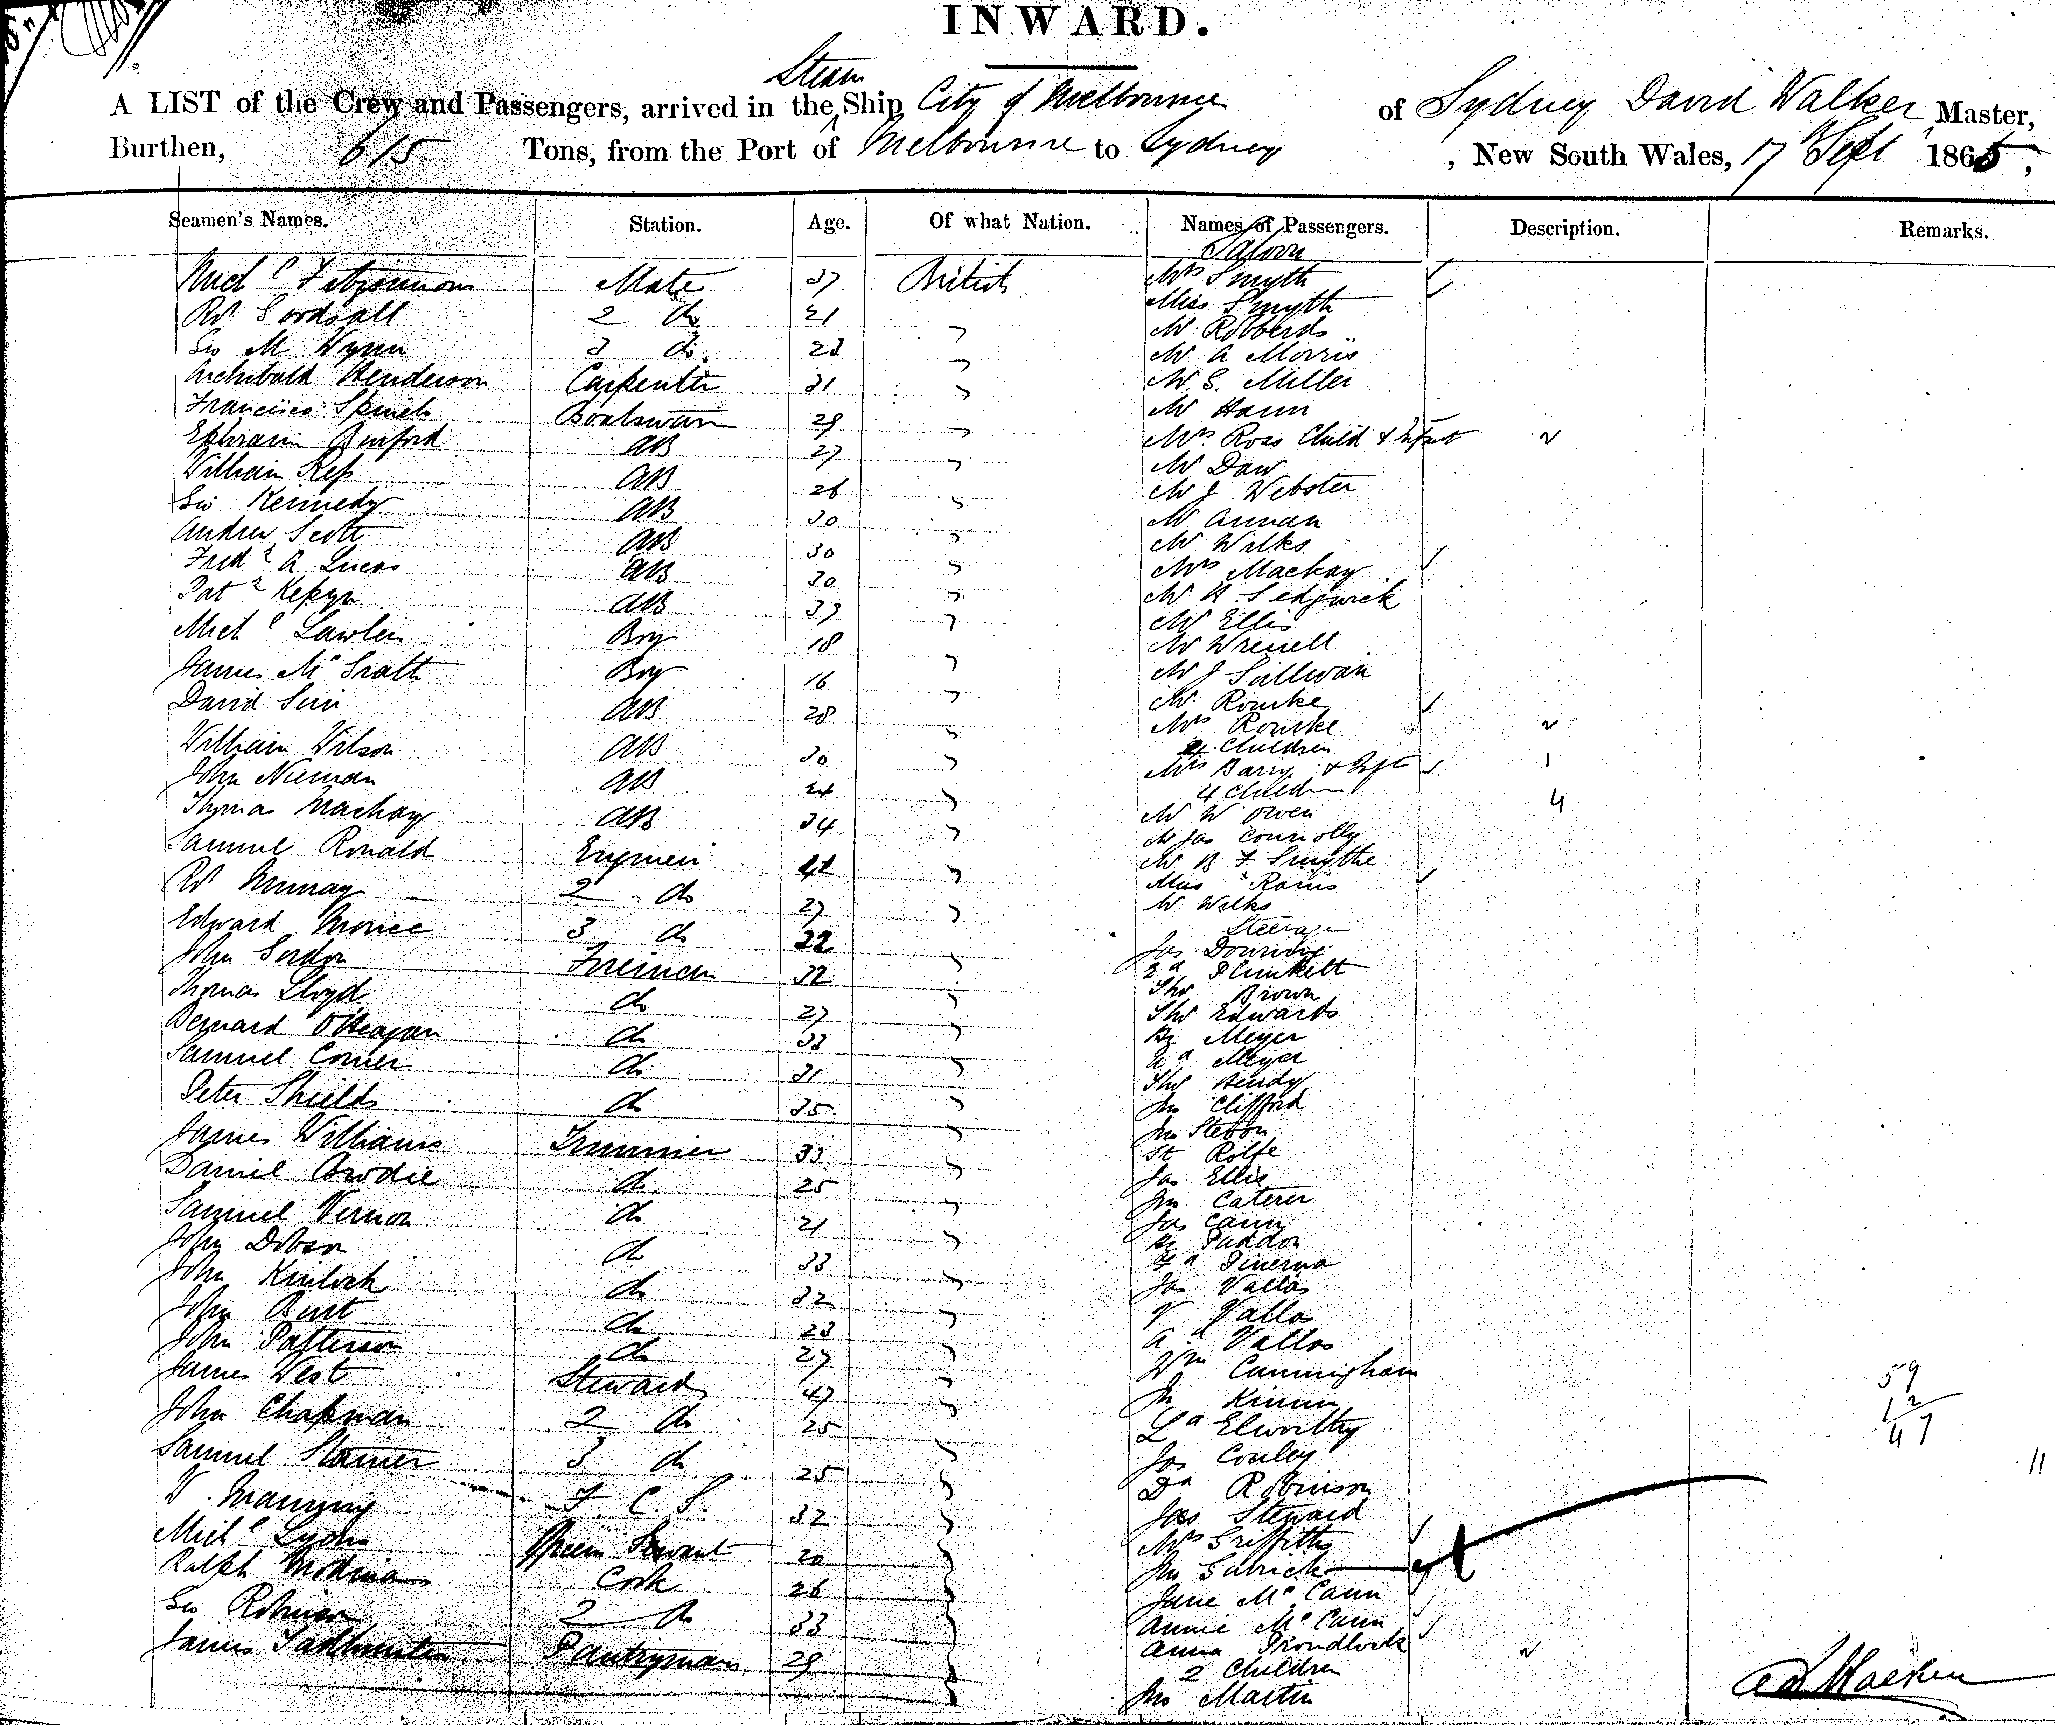 INWARD.
Steam
A LIST of the Crew and Passengers, arrived in the Ship City of Melbourne of Sydney David Walker, Master,
Burthen, 615 Tons, from the Port of Melbourne to Sydney, New South Wales, 17 Sept 1865,
Seamen's Names. Station. Age. Of what Nation. Names of Passengers. Description. Remarks.
Saloon
Mich l Fitzsimmons Mate 37 British Mrs Smyth
Miss Smyth
Rt Sordsall 2 do 21 Mr Robberds
Geo M Wynn 3 do 23 Mr A Morris
Archibald Henderson Carpenter 31 Mr S. Miller
Francisco Boatswain 29 Mr Hann
Ephraim Binford AB 27 Mrs Ross Child & Infant
William AB 26 Mr Daw
Geo Kennedy AB 30 Mr J Webster
Andrew Scott AB 30 Mr Annan
Fred k A Lucas AB 30 Mr Wilks
Pat k AB 37 Mrs Mackay
Mich l Lawler Boy 18 Mr H. Sedgwick
James McGrath Boy 16 Mr Ellis
David Sim AB 28 Mr Wrenell
William Wilson AB 30 Mr J Sullivan
John Nieman AB 24 Mr Rourke
Thomas Mackay AB 34 Mrs Rourke
Samuel Ronald Engineer 42 Children
Rt Murray 2 do 27 Mrs Barry & Inft 1
Edward Morice 3 do 32 4 Children 4
John Gordon Fireman 32 Mr W Owen
Thomas Lloyd do 27 Mr Jas Connolly
Bernard O'Heagan do 33 Mr B F Smythe
Samuel Corner do 31 Miss
Peter Shields do 35 Mr Wilks
James Williams Trimmer 33 Steerage
Daniel Brodie do 25 Jas Downing
Samuel Vernon do 21 Ed Plunkett
John Dobson do 33 Thos Brown
John Kinloch do 32 Thos Edwards
John Burt do 23 Hy Meyer
John Patterson do 27 Meyer
James West Steward 47 Thos Hendy
John Chapman 2 do 25 Jno Clifford
Samuel Stainer 3 do 25 Jno
W. Manning F. C. S. 32 St Rolfe
Mich l Lyons Servant 20 Jas Ellis
Ralph Cook 26 Jno Caterer
Geo Robinson 2 do 33 Jas Cann
James Pantryman 29 Hy Paddon
Jas Vallas
V Vallas
A Vallas
Wm Cunningham
Jn
Ed Elworthy
Jas Conley
Dd Robinson
Jas Steward
Mrs Griffiths
Jno
Jane McCann
Annie McCann
Anna Proudlock
2 Children
Jno Martin
59
12
47
11